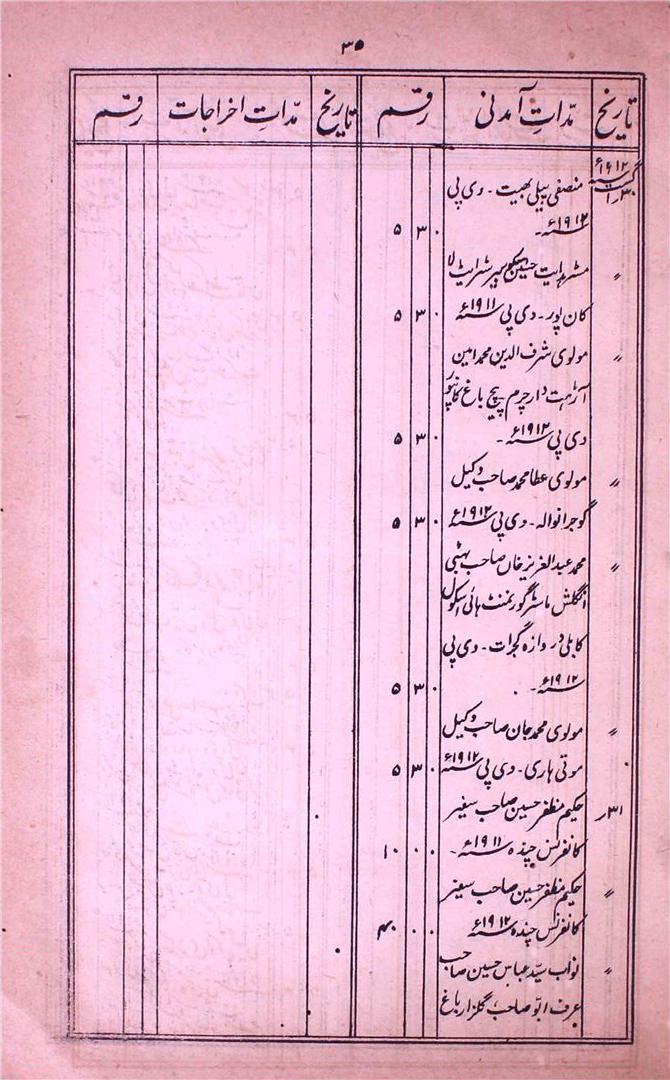 ۳۵
تاریخ مدّاتِ آمدنی رقم تاریخ مدّاتِ اخراجات رقم
۱۹۱۲ء
۳۰ منصفی پیلی بھیت - وی پی
۱۹۱۲ء - ۵ ۳ ۰
〃 ہدایت حسین
کان پور - وی پی ۱۹۱۱ء ۵ ۳ ۰
〃 مولوی شرف الدین محمد امین
آڑہت دار چرم پیچ باغ کانپور
وی پی ۱۹۱۲ء - ۵ ۳ ۰
〃 مولوی عطا محمد صاحب وکیل
گوجرانوالہ - وی پی ۱۹۱۲ء ۵ ۳ ۰
〃 محمد عبدالعزیز خاں صاحب
انگلش ماسٹر گورنمنٹ ہائی اسکول
کابلی دروازہ گجرات - وی پی
۱۹۱۲ء - ۵ ۳ ۰
〃 مولوی محمد جان صاحب وکیل
موتی ہاری - وی پی ۱۹۱۲ء ۵ ۳ ۰
۳۱ حکیم مظفر حسین صاحب سفیر
کانفرنس چندہ ۱۹۱۱ء - ۱۰ ۰ ۰
〃 حکیم مظفر حسین صاحب سفیر
کانفرنس چندہ ۱۹۱۲ء ۴۰ ۰ ۰
〃 نواب سیّد عباس حسین صاحب
عرف ابّو صاحب گلزار باغ